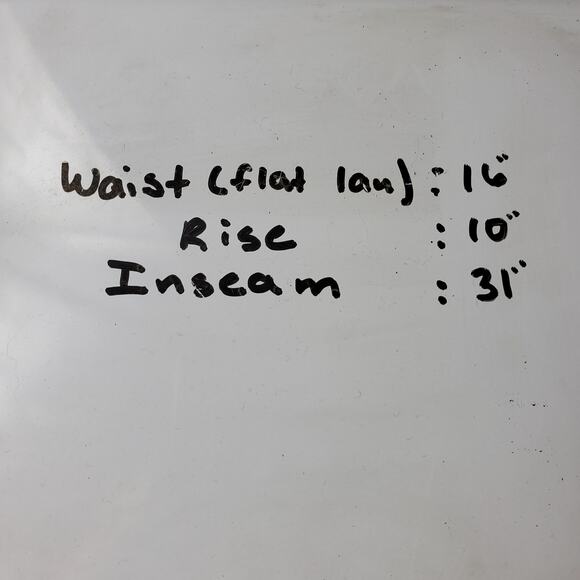 Waist (flat lay) : 16"
Rise : 10"
Inseam : 31"